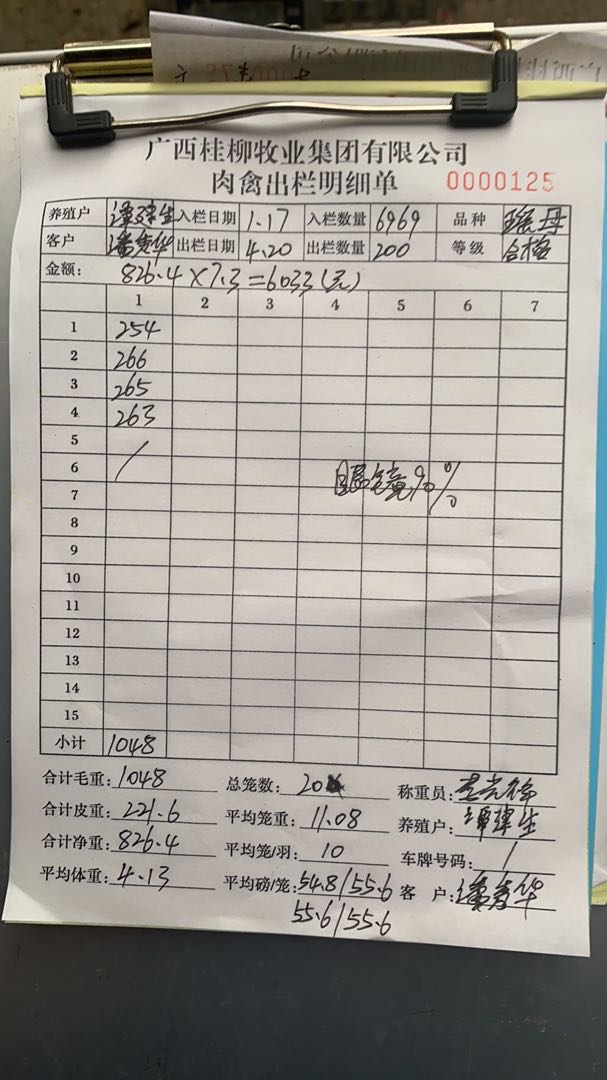 广西桂柳牧业集团有限公司
肉禽出栏明细单 0000125
养殖户 入栏日期 1.17 入栏数量 6969 品种
客户 出栏日期 4.20 出栏数量 200 等级 合格
金额: 826.4×7.3=6033(元)
1 2 3 4 5 6 7
1 254
2 266
3 265
4 263
5
6 /
7 90%
8
9
10
11
12
13
14
15
小计 1048
合计毛重: 1048 总笼数: 20 称重员:
合计皮重: 221.6 平均笼重: 11.08 养殖户:
合计净重: 826.4 平均笼/羽: 10 车牌号码: /
平均体重: 4.13 平均磅/笼: 54.8/55.6 客 户:
55.6/55.6